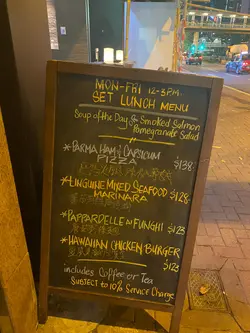 MON-FRI 12-3PM
SET LUNCH MENU
Soup of the Day & Smoked Salmon
Pomegranate Salad
*PARMA HAM & CAPSICUM
PIZZA $138
*LINGUINE MIXED SEAFOOD $128
MARINARA
*PAPPARDELLE AI FUNGHI $123
*HAWAIIAN CHICKEN BURGER
$123
includes Coffee or Tea
SUBJECT to 10% Service Charge